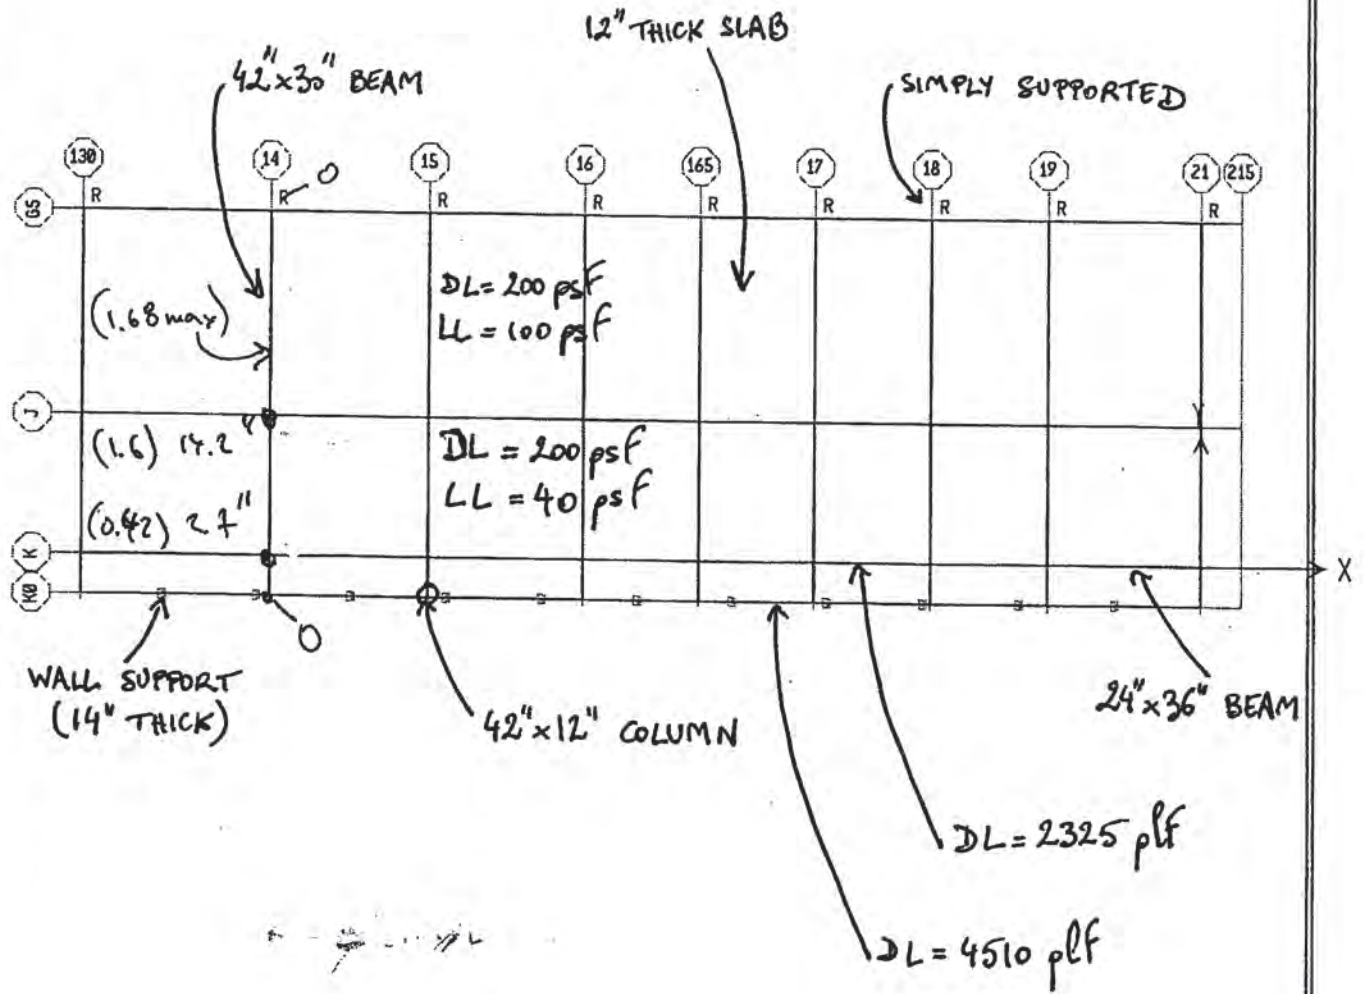 12" THICK SLAB
42"x30" BEAM
SIMPLY SUPPORTED
130 14 15 16 165 17 18 19 21 215
R R O R R R R R R R
G5
DL = 200 psf
LL = 100 psf
(1.68 max)
J
(1.6) 14.2"
DL = 200 psf
LL = 40 psf
(0.42) 2.7"
K
X
K0
O
WALL SUPPORT
(14" THICK)
42"x12" COLUMN
24"x36" BEAM
DL = 2325 plf
DL = 4510 plf